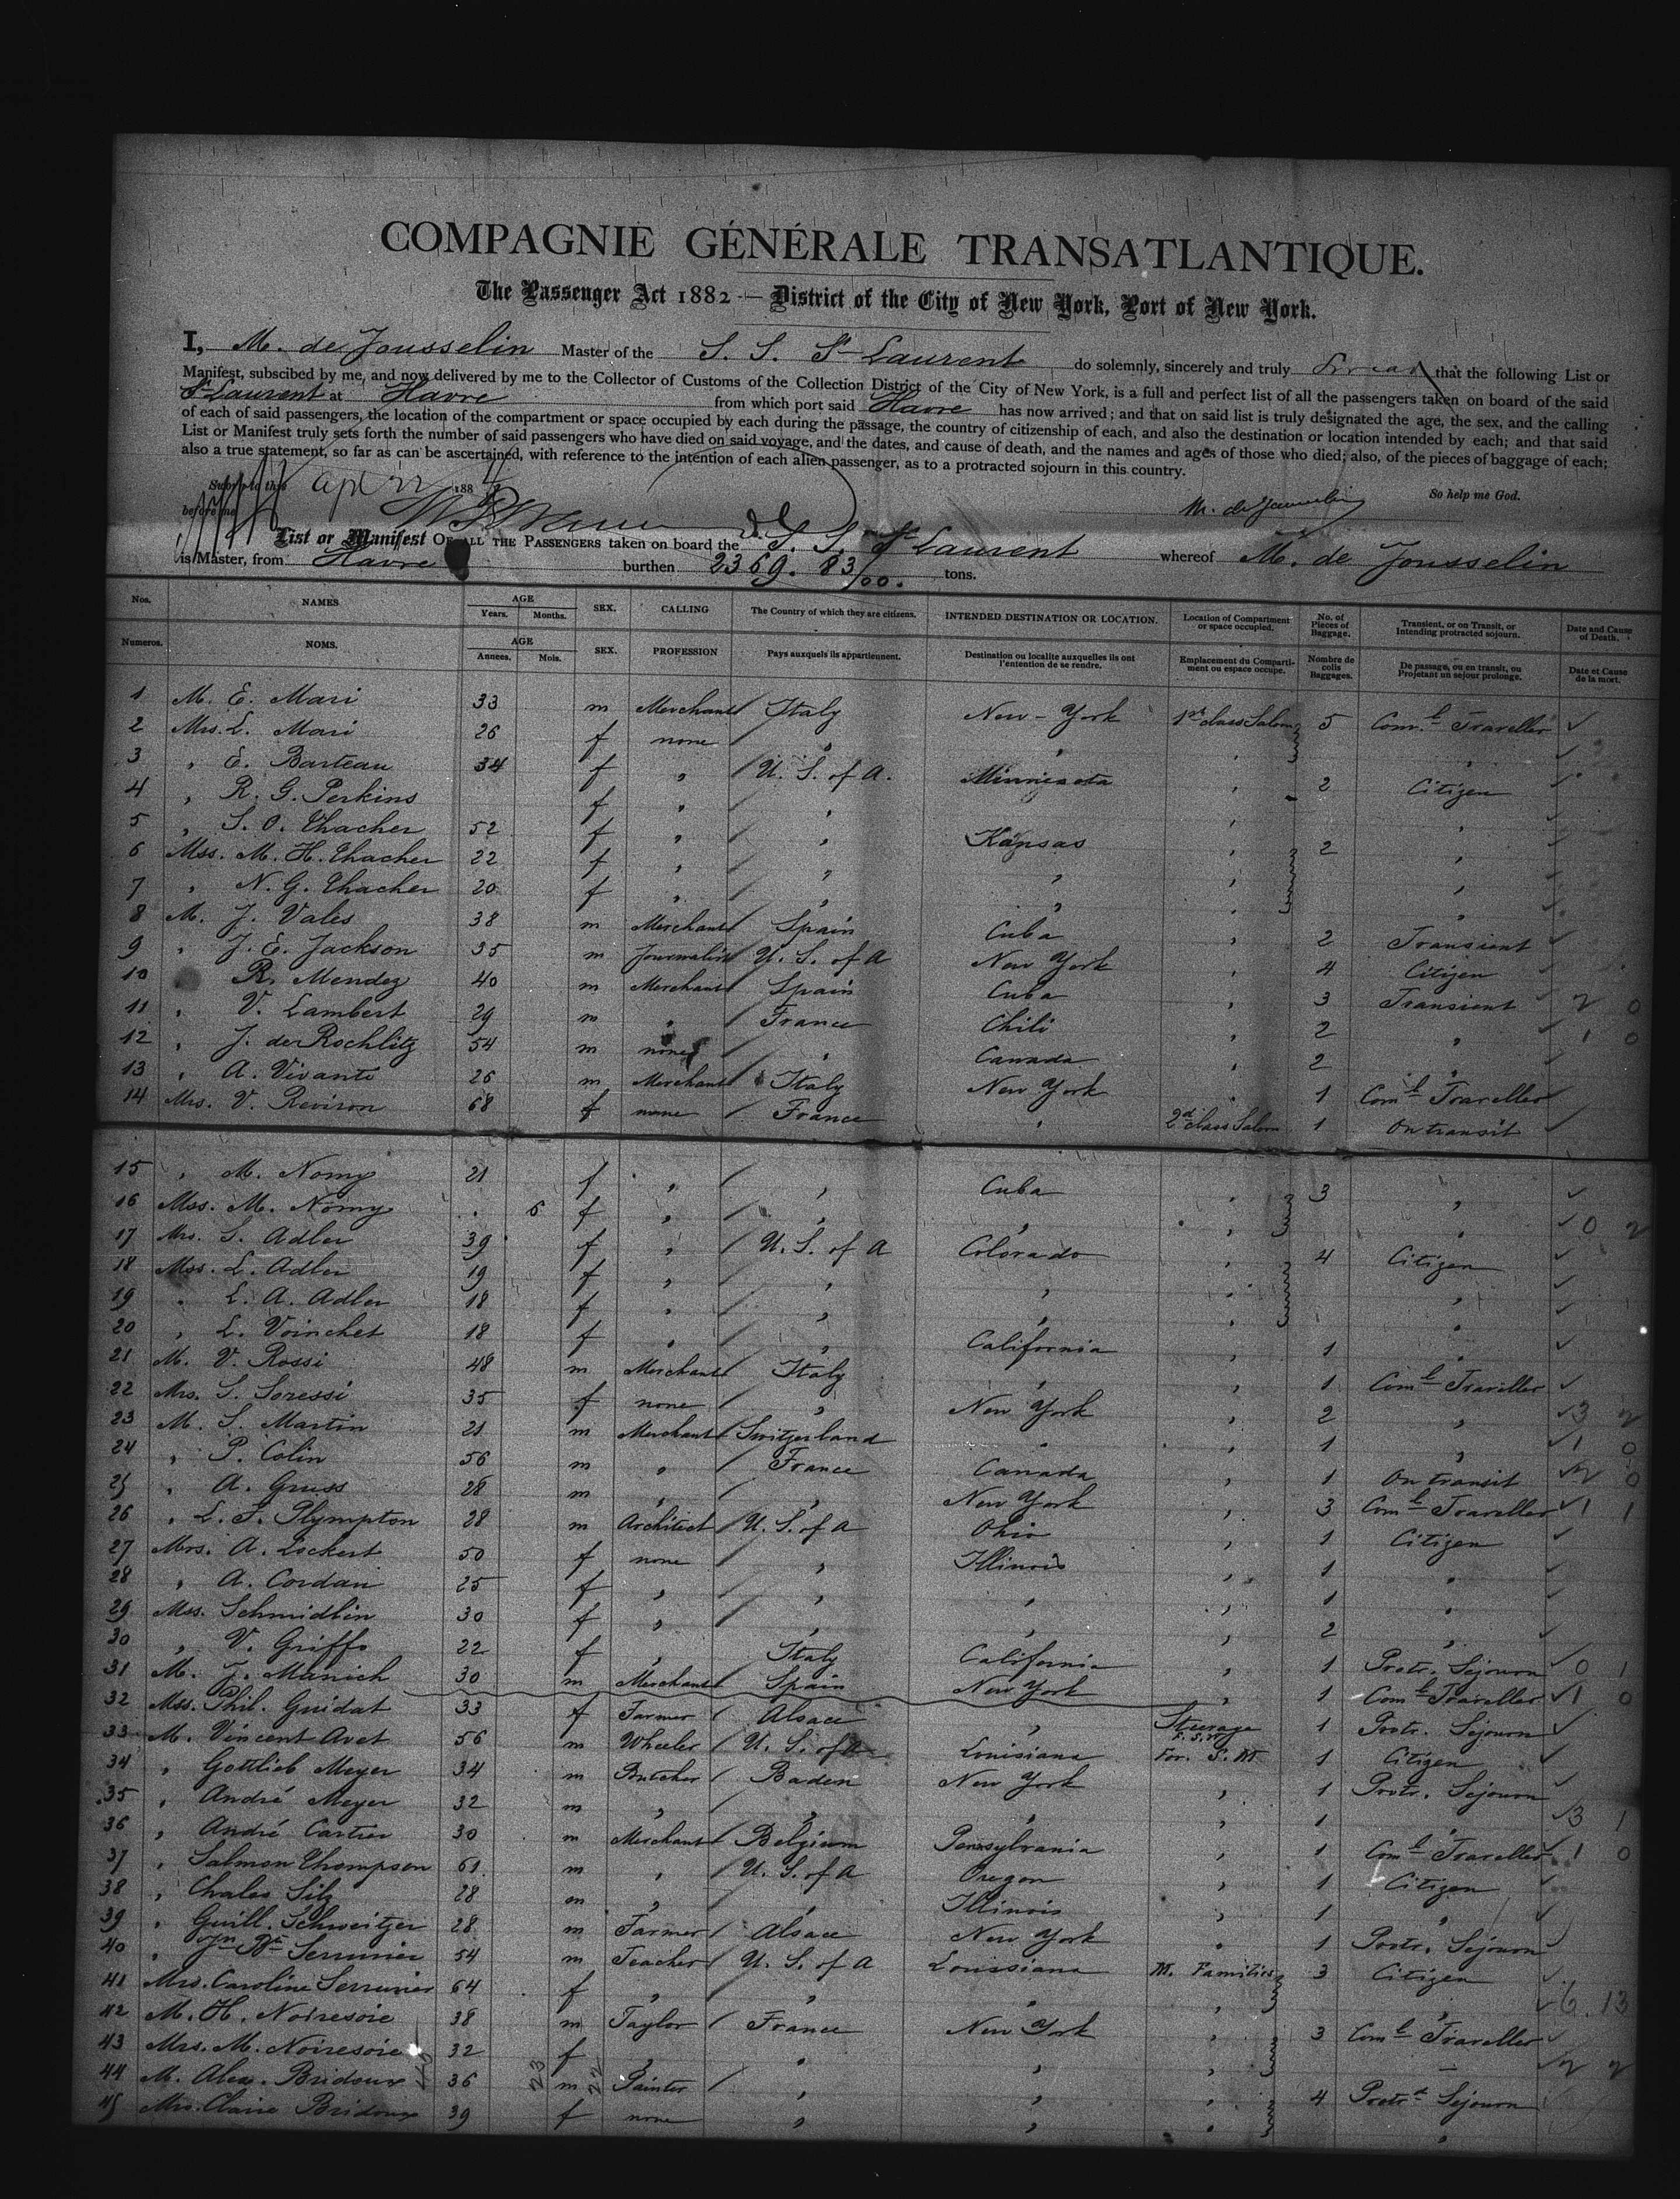 COMPAGNIE GÉNÉRALE TRANSATLANTIQUE.
The Passenger Act 1882 — District of the City of New York, Port of New York.
I, M. de Jousselin Master of the S. S. St Laurent do solemnly, sincerely and truly swear that the following List or
Manifest, subscibed by me, and now delivered by me to the Collector of Customs of the Collection District of the City of New York, is a full and perfect list of all the passengers taken on board of the said
St Laurent at Havre from which port said Havre has now arrived; and that on said list is truly designated the age, the sex, and the calling
of each of said passengers, the location of the compartment or space occupied by each during the passage, the country of citizenship of each, and also the destination or location intended by each; and that said
List or Manifest truly sets forth the number of said passengers who have died on said voyage, and the dates, and cause of death, and the names and ages of those who died; also, of the pieces of baggage of each;
also a true statement, so far as can be ascertained, with reference to the intention of each alien passenger, as to a protracted sojourn in this country.
So help me God.
Sworn to this Apl 22 188
before me
M. de Jousselin
List or Manifest OF ALL THE PASSENGERS taken on board the S. S. St Laurent whereof M. de Jousselin
is Master, from Havre burthen 2369. 83/00. tons.
Nos. NAMES AGE Years. Months. SEX. CALLING The Country of which they are citizens. INTENDED DESTINATION OR LOCATION. Location of Compartment or space occupied. No. of Pieces of Baggage. Transient, or on Transit, or Intending protracted sojourn. Date and Cause of Death.
Numeros. NOMS. AGE Annees. Mois. SEX. PROFESSION Pays auxquels ils appartiennent. Destination ou localite auxquelles ils ont l'entention de se rendre. Emplacement du Comparti-ment ou espace occupe. Nombre de colis Baggages. De passage, ou en transit, ou Projetant un sejour prolonge. Date et Cause de la mort.
1 M. E. Mari 33 m Merchant Italy New-York 1st class Salon 5 Coml Traveller
2 Mrs. L. Mari 26 f none " " " "
3 " E. Barteau 34 f " U. S. of A. Minnesota " 2 Citizen
4 " R. G. Perkins f " " " "
5 " S. O. Thacher 52 f " " Kansas " 2 "
6 Mss. M. H. Thacher 22 f " " " " "
7 " N. G. Thacher 20 f " " " " "
8 M. J. Vales 38 m Merchant Spain Cuba " 2 Transient
9 " J. E. Jackson 35 m Journalist U. S. of A New York " 4 Citizen
10 R. Mendez 40 m Merchant Spain Cuba " 3 Transient 2 0
11 " V. Lambert 29 m " France Chili " 2 " 1 0
12 " J. de Rochlitz 54 m none " Canada " 2 "
13 " A. Vivanti 26 m Merchant Italy New York " 1 Coml Traveller
14 Mrs. V. Reviron 68 f none France " 2d class Salon 1 On transit
15 " M. Nomy 21 f " " Cuba " 3 "
16 Mss. M. Nomy 6 f " " " " " 0 2
17 Mrs. S. Adler 39 f " U. S. of A Colorado " 4 Citizen
18 Mss. L. Adler 19 f " " " " "
19 " L. A. Adler 18 f " " " " "
20 " L. Voinchet 18 f " " California " 1 "
21 M. V. Rossi 48 m Merchant Italy " " 1 Coml Traveller
22 Mrs. S. Soressi 35 f none " New York " 2 " 3 2
23 M. S. Martin 21 m Merchant Switzerland " " 1 " 1 0
24 " P. Colin 56 m " France Canada " 1 On transit 2 0
25 " A. Gruss 28 m " " New York " 3 Coml Traveller 1 1
26 " L. S. Plympton 28 m Architect U. S. of A Ohio " 1 Citizen
27 Mrs. A. Lockert 50 f none " Illinois " 1 "
28 " A. Cordan 25 f " " " " 1 "
29 Mss. Schmidlin 30 f " " " " 2 "
30 " V. Griffo 22 f " Italy California " 1 Protr. Sejourn 0 1
31 M. J. Munich 30 m Merchant Spain New York " 1 Coml Traveller 1 0
32 Mss. Phil. Guidat 33 f Farmer Alsace " Steerage F. S. W 1 Protr. Sejourn
33 M. Vincent Avet 56 m Wheeler U. S. of A Louisiana For. S. M. 1 Citizen
34 " Gottlieb Meyer 34 m Butcher Baden New York " 1 Protr. Sejourn
35 " André Meyer 32 m " " " " 1 " 3 1
36 " André Cartier 30 m Merchant Belgium Pensylvania " 1 Coml Traveller 1 0
37 " Salmon Thompson 61 m " U. S. of A Oregon " 1 Citizen
38 " Chales Silz 28 m " " Illinois " 1 "
39 " Guill. Schweitzer 28 m Farmer Alsace New York " 1 Protr. Sejourn
40 " Jn Bte Serrurier 54 m Teacher U. S. of A Louisiana M. Families 3 Citizen
41 Mrs. Caroline Serrurier 64 f " " " " " 6. 13
42 M. H. Noiresoie 38 m Taylor France New York " 3 Coml Traveller
43 Mrs. M. Noiresoie 32 f " " " " — 2 2
44 M. Alex. Bridoux 36 m Painter " " " 4 Protr. Sejourn
45 Mrs. Claire Bridoux 39 f none " " " "
23 22